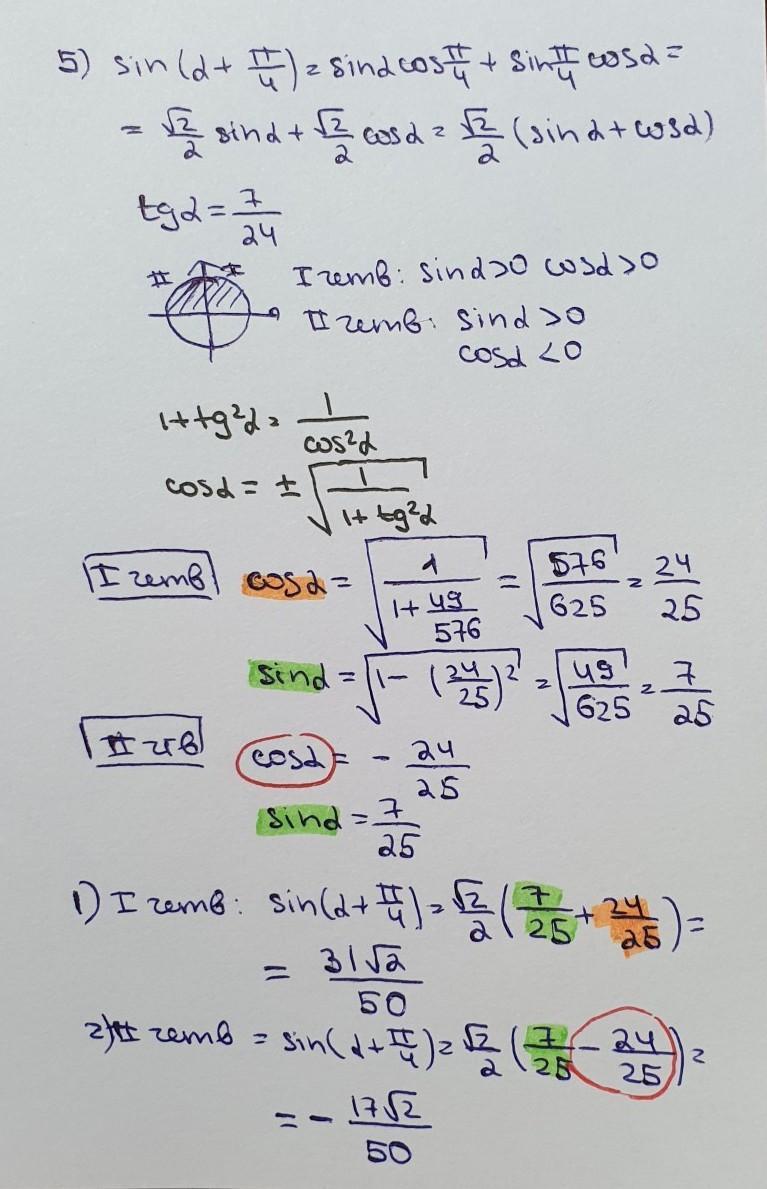 5) sin(α + π/4) = sinα cos π/4 + sin π/4 cosα =
= √2/2 sinα + √2/2 cosα = √2/2 (sinα + cosα)
tgα = 7/24
II I
I четв: sinα>0 cosα>0
II четв: sinα >0
cosα <0
1+tg²α = 1/cos²α
cosα = ± √(1/(1+tg²α))
I четв cosα = √(1/(1+49/576)) = √(576/625) = 24/25
sinα = √(1-(24/25)²) = √(49/625) = 7/25
II чтв cosα = - 24/25
sinα = 7/25
1) I четв: sin(α+π/4) = √2/2 (7/25 + 24/25) =
= 31√2/50
2) II четв = sin(α+π/4) = √2/2 (7/25 - 24/25) =
= - 17√2/50